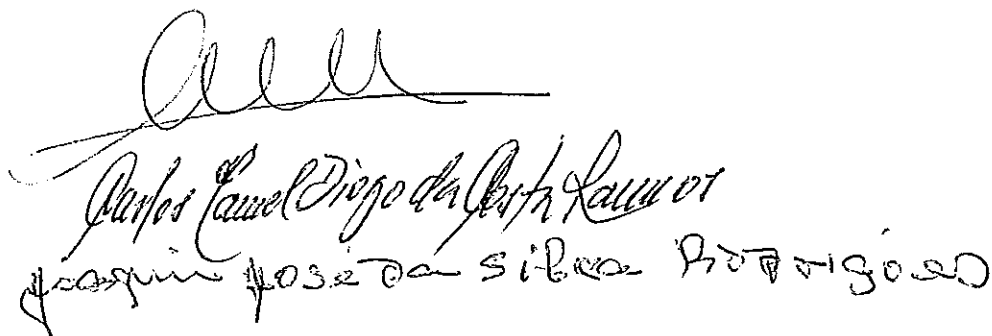 Carlos Manuel Diogo da Costa Ramos
Joaquim José da Silva Rodrigues